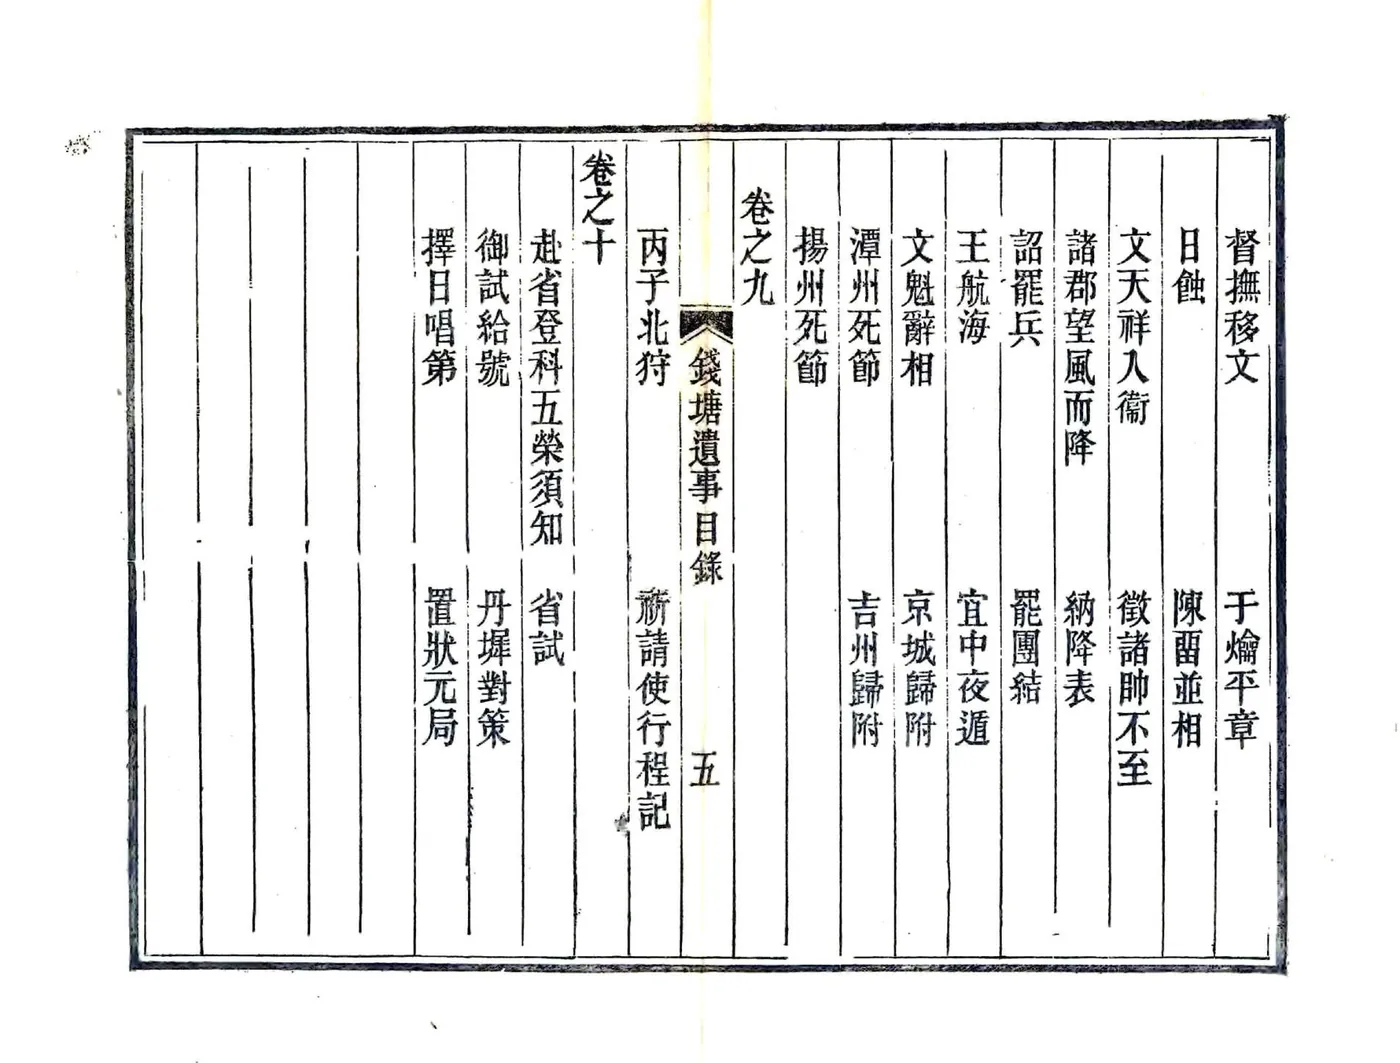 督撫移文　于爚平章
日蝕　陳畱並相
文天祥入衞　徵諸帥不至
諸郡望風而降　納降表
詔罷兵　罷團結
王航海　宜中夜遁
文魁辭相　京城歸附
潭州死節　吉州歸附
揚州死節
卷之九
錢塘遺事目錄　五
丙子北狩　祈請使行程記
卷之十
赴省登科五榮須知　省試
御試給號　丹墀對策
擇日唱第　置狀元局